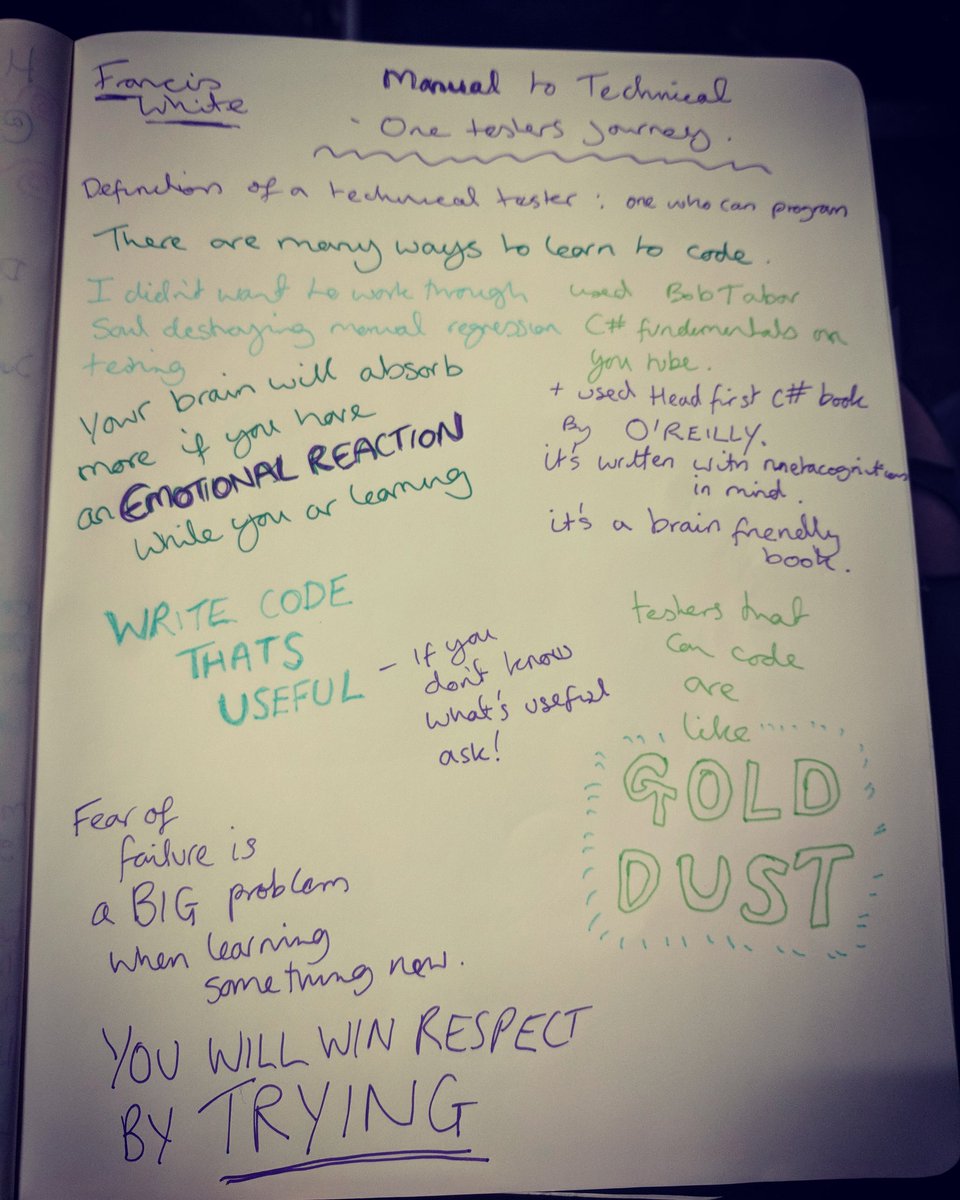 Francis
White
Manual to Technical
- One testers journey.
Definition of a technical tester: one who can program
There are many ways to learn to code.
I didn't want to work through
Soul destroying manual regression
testing
used Bob Tabor
C# fundementals on
you tube.
+ used Head first C# book
By O'REILLY.
it's written with metacognition
in mind.
it's a brain friendly
book.
Your brain will absorb
more if you have
an EMOTIONAL REACTION
while you ar learning
WRITE CODE
THATS
USEFUL
- If you
don't know
what's useful
ask!
testers that
can code
are
like
GOLD
DUST
Fear of
failure is
a BIG problem
when learning
something new.
YOU WILL WIN RESPECT
BY TRYING